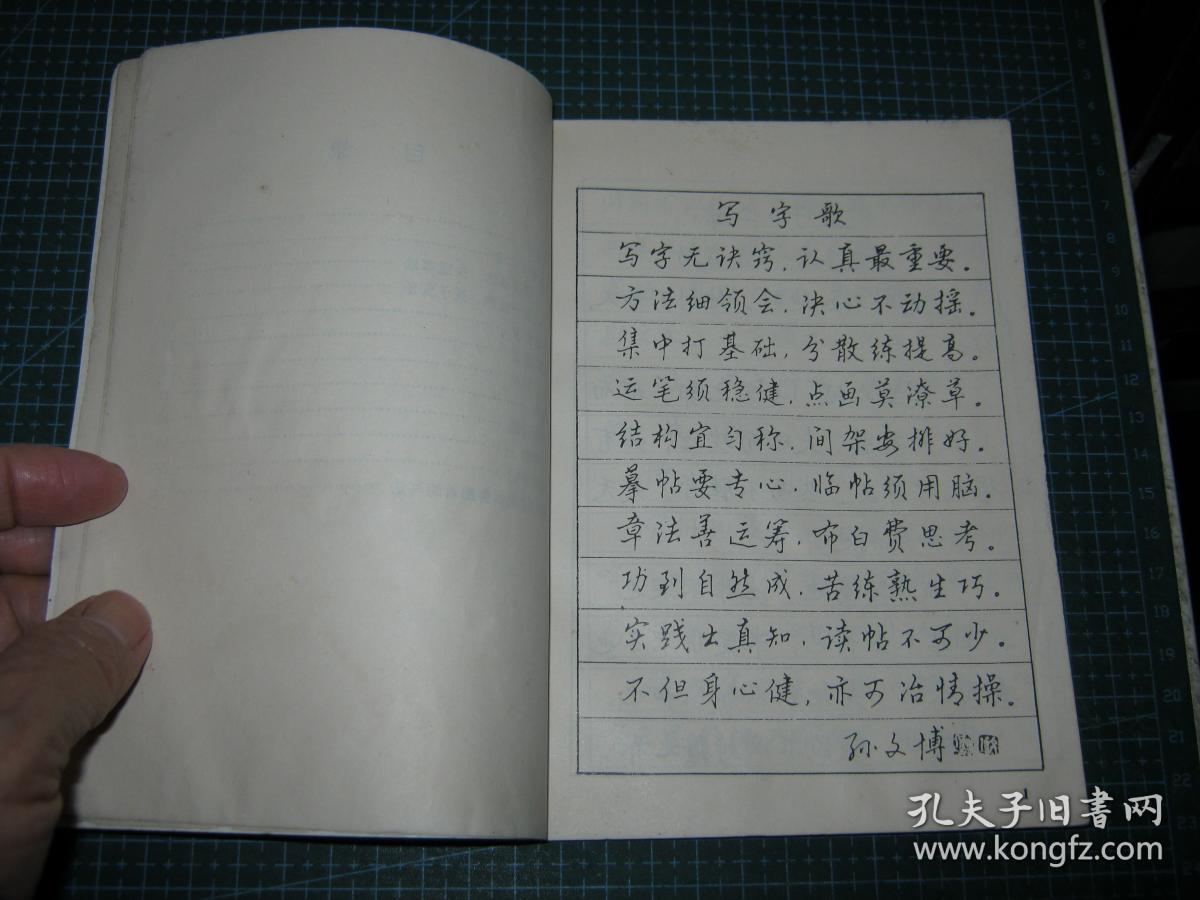 写字歌
写字无诀窍，认真最重要。
方法细领会，决心不动摇。
集中打基础，分散练提高。
运笔须稳健，点画莫潦草。
结构宜匀称，间架安排好。
摹帖要专心，临帖须用脑。
章法善运筹，布白费思考。
功到自然成，苦练熟生巧。
实践出真知，读帖不可少。
不但身心健，亦可冶情操。
孙文博
1
孔夫子旧书网
www.kongfz.com